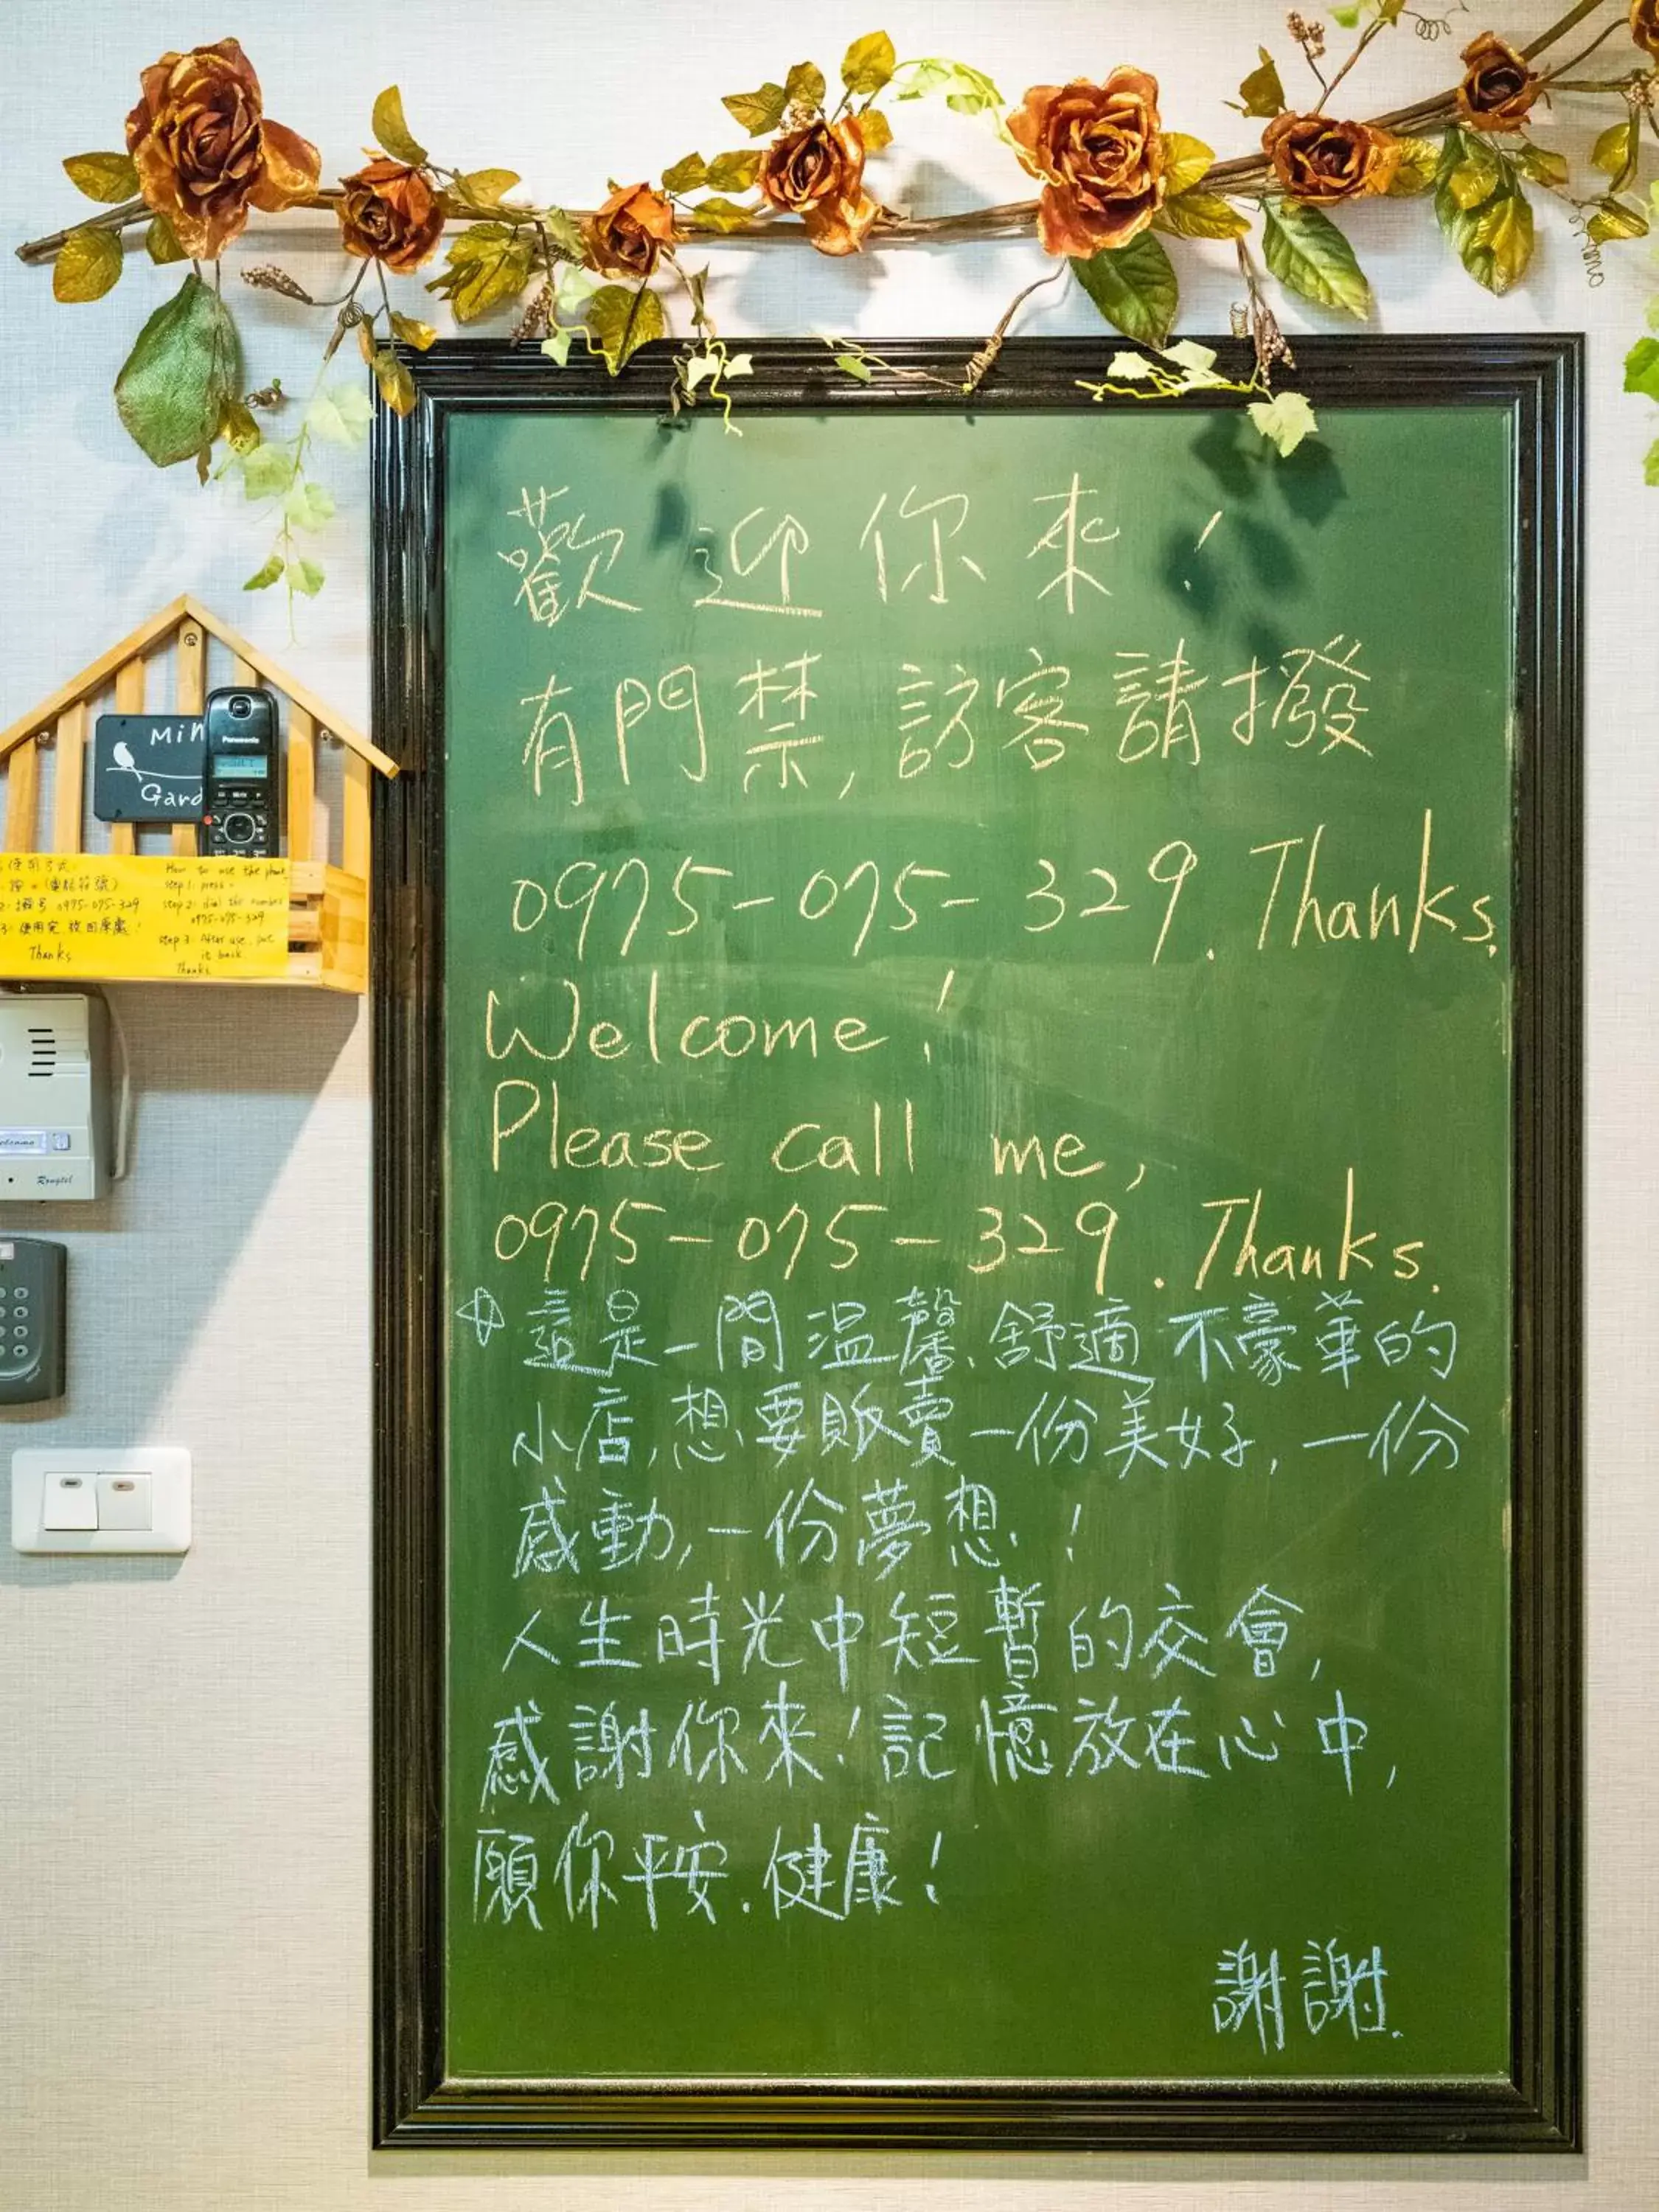 歡迎你來！
有門禁，訪客請撥
0975-075-329. Thanks.
Welcome！
Please call me,
0975-075-329. Thanks.
☆這是一間溫馨、舒適不豪華的
小店，想要販賣一份美好，一份
感動，一份夢想！
人生時光中短暫的交會，
感謝你來！記憶放在心中，
願你平安、健康！
謝謝.
Panasonic
Gard
使用方式:
按 (電話符號)
2:撥号 0975-075-329
3:使用完,放回原處!
Thanks
How to use the phone
step 1: press
step 2: dial the number
0975-075-329
step 3: After use, put
it back.
Thanks
Rongtel